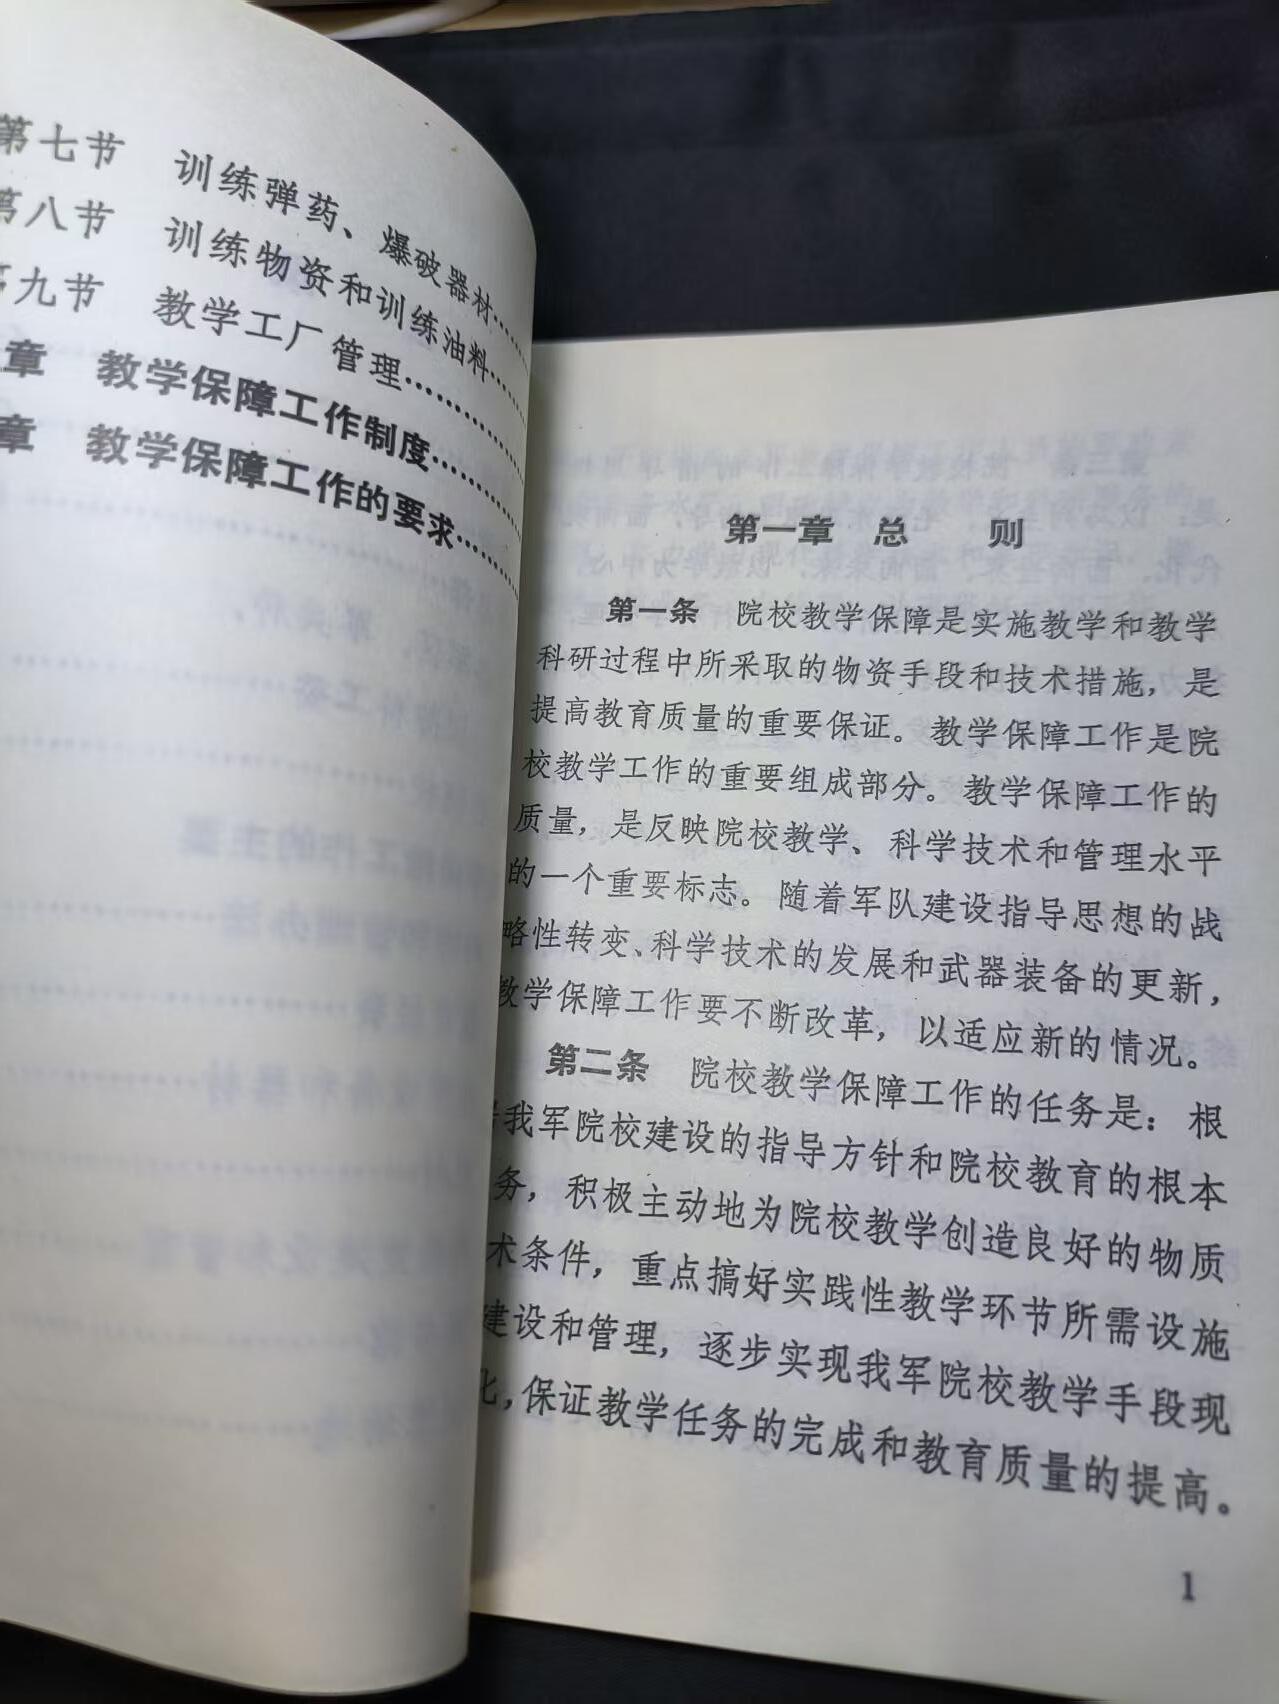 第七节 训练弹药、爆破器材……
第八节 训练物资和训练油料……
九节 教学工厂管理……
章 教学保障工作制度……
章 教学保障工作的要求……
第一章 总 则
第一条 院校教学保障是实施教学和教学
科研过程中所采取的物资手段和技术措施，是
提高教育质量的重要保证。教学保障工作是院
校教学工作的重要组成部分。教学保障工作的
质量，是反映院校教学、科学技术和管理水平
的一个重要标志。随着军队建设指导思想的战
略性转变、科学技术的发展和武器装备的更新，
教学保障工作要不断改革，以适应新的情况。
第二条 院校教学保障工作的任务是：根
我军院校建设的指导方针和院校教育的根本
务，积极主动地为院校教学创造良好的物质
术条件，重点搞好实践性教学环节所需设施
建设和管理，逐步实现我军院校教学手段现
化，保证教学任务的完成和教育质量的提高。
1